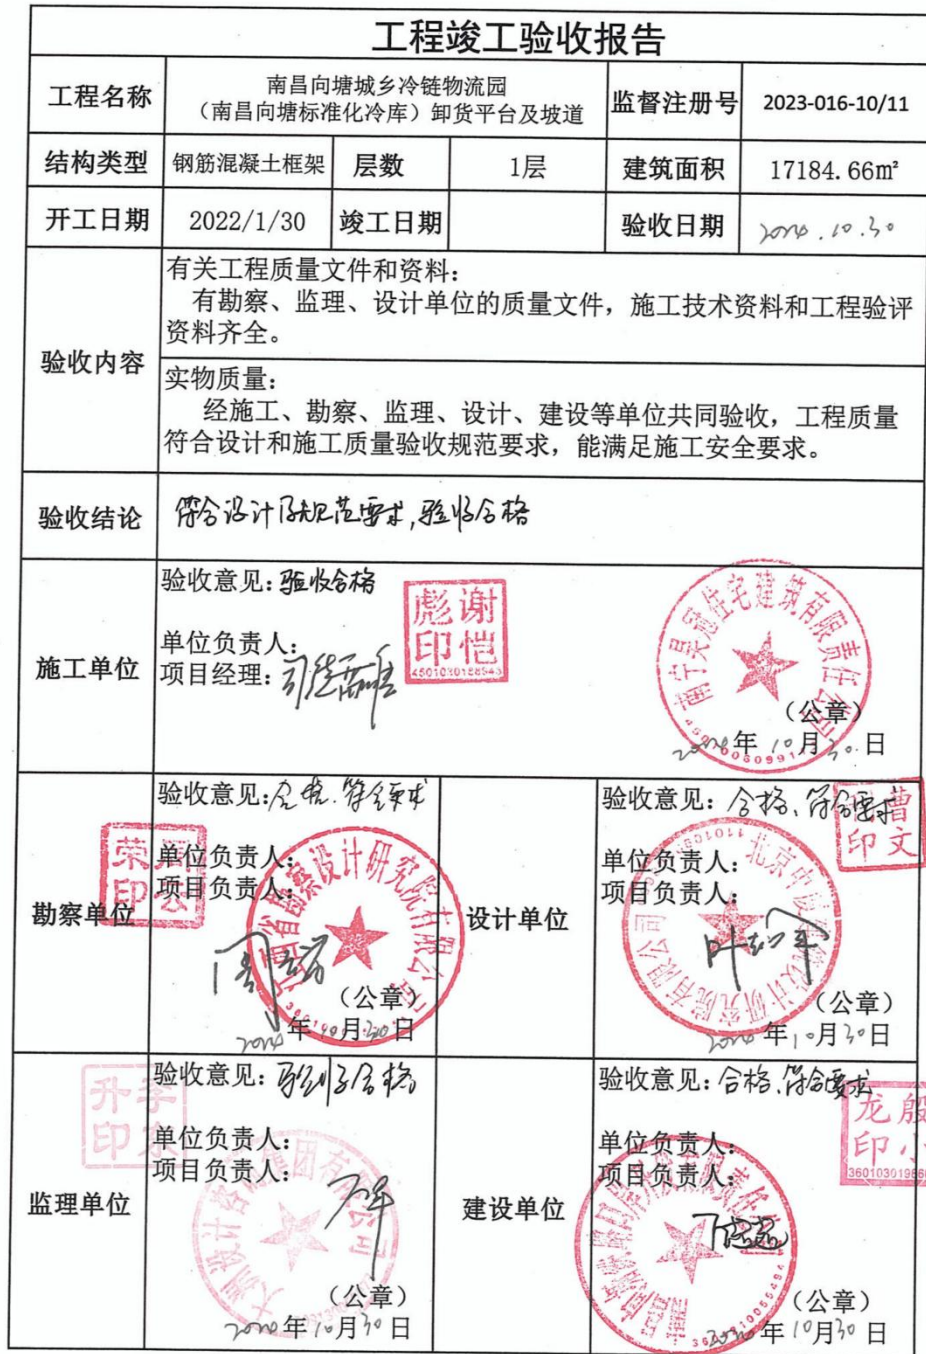 工程竣工验收报告
工程名称
南昌向塘城乡冷链物流园
（南昌向塘标准化冷库）卸货平台及坡道
监督注册号
2023-016-10/11
结构类型
钢筋混凝土框架
层数
1层
建筑面积
17184.66m²
开工日期
2022/1/30
竣工日期
验收日期
2024.10.30
验收内容
有关工程质量文件和资料：
有勘察、监理、设计单位的质量文件，施工技术资料和工程验评
资料齐全。
实物质量：
经施工、勘察、监理、设计、建设等单位共同验收，工程质量
符合设计和施工质量验收规范要求，能满足施工安全要求。
验收结论
符合设计及规范要求，验收合格
施工单位
验收意见：验收合格
单位负责人：
项目经理：
彪谢
印恺
（公章）
2024年10月30日
勘察单位
验收意见：合格、符合要求
单位负责人：
项目负责人：
（公章）
2024年10月30日
设计单位
验收意见：合格、符合要求
单位负责人：
项目负责人：
曹
印文
（公章）
2024年10月30日
监理单位
验收意见：验收合格
单位负责人：
项目负责人：
升李
印
（公章）
2024年10月30日
建设单位
验收意见：合格、符合要求
单位负责人：
项目负责人：
龙殷
印小
（公章）
2024年10月30日